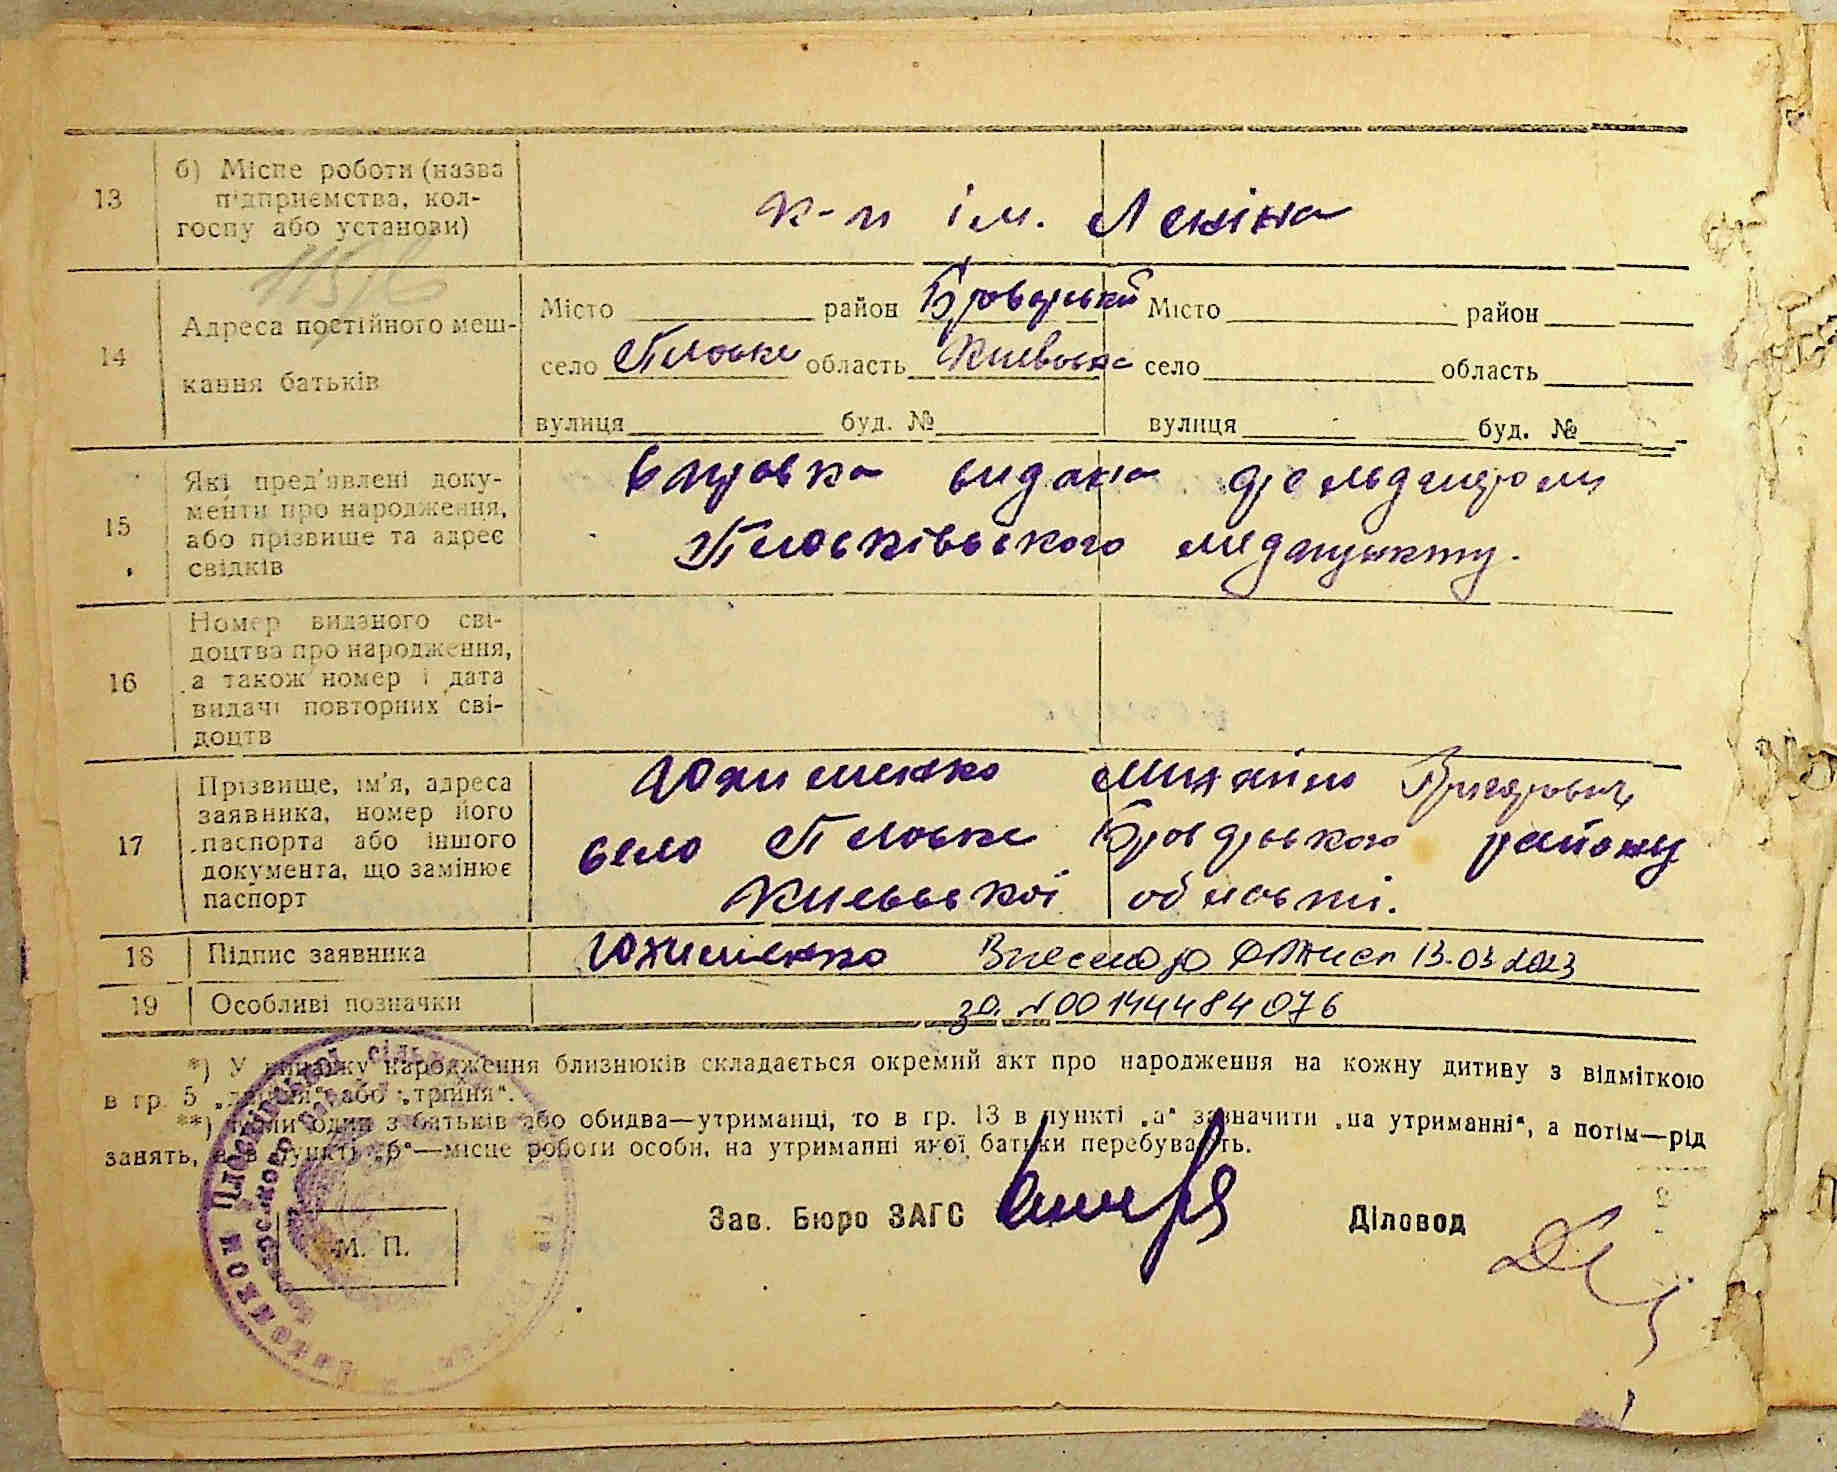 13
б) Місце роботи (назва
підприємства, кол-
госпу або установи)
к-п ім. Леніна
115/6
14
Адреса постійного меш-
кання батьків
Місто район Броварський Місто район
село Плоске область Київська село область
вулиця буд. № вулиця буд. №
15
Які пред'явлені доку-
менти про народження,
або прізвище та адрес
свідків
Справка видана фельдшером
Плосківського медпункту.
16
Номер виданого сві-
доцтва про народження,
а також номер і дата
видачі повторних сві-
доцтв
17
Прізвище, ім'я, адреса
заявника, номер його
паспорта або іншого
документа, що замінює
паспорт
Юхименко Михайло Григорович
село Плоске Броварського району
Київської області.
18 Підпис заявника Юхименко Внесено до 13.03.2023
19 Особливі позначки за №00144484076
*) У випадку народження близнюків складається окремий акт про народження на кожну дитину з відміткою
в гр. 5 „двійня“ або „трійня“.
**) Коли один з батьків або обидва—утриманці, то в гр. 13 в пункті „а“ зазначити „на утриманні“, а потім—рід
занять, а в пункті „б“—місце роботи особи, на утриманні якої батьки перебувають.
Зав. Бюро ЗАГС Діловод
М. П.